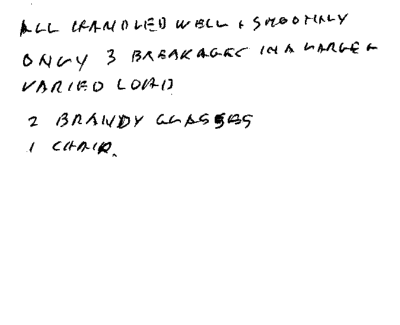 ALL HANDLED WELL + SMOOTHLY
ONLY 3 BREAKAGES IN A LARGE +
VARIED LOAD
2 BRANDY GLASSES
1 CHAIR.